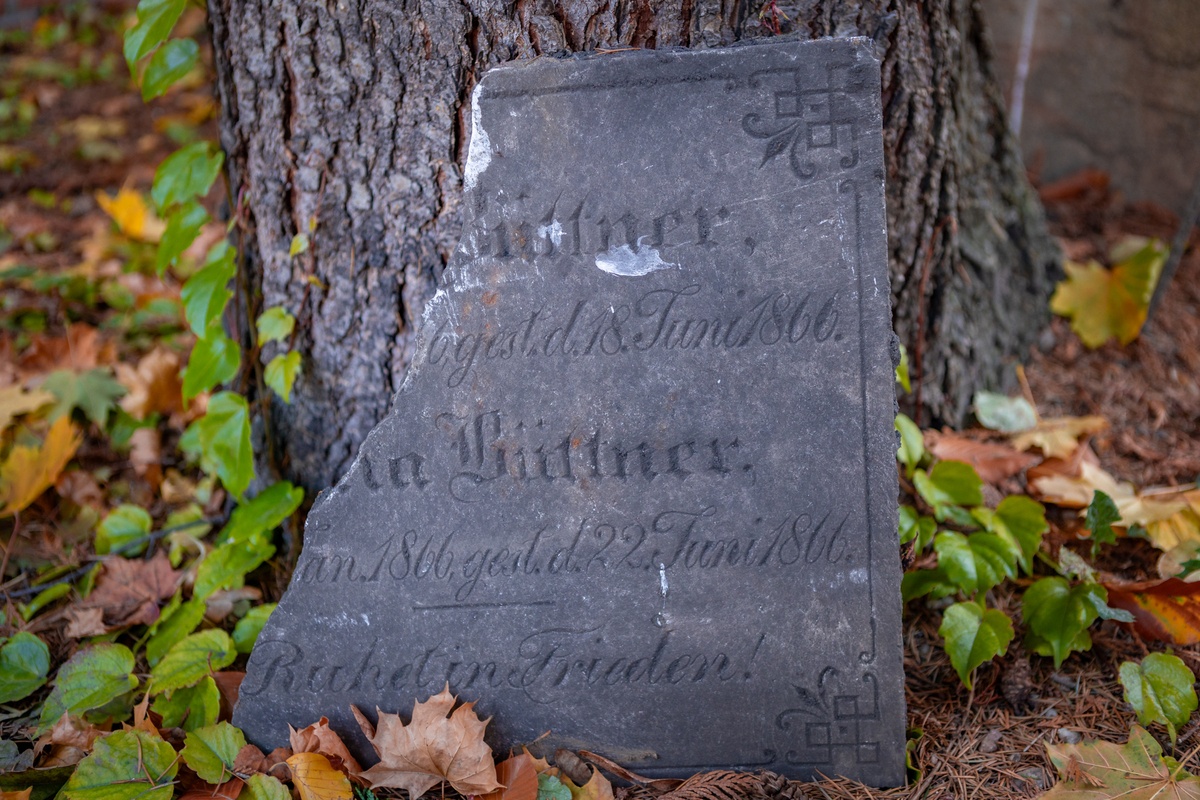 Büttner,
6, gest. d. 18. Juni 1866.
na Büttner,
an. 1866, gest. d. 22. Juni 1866.
Ruhet in Frieden!